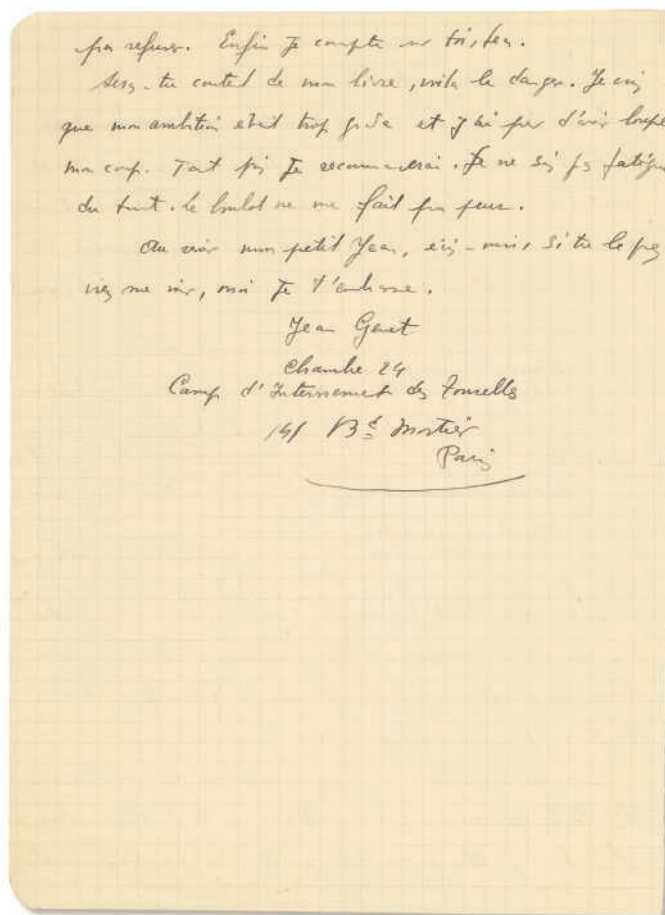 pas refuser. Enfin je compte sur toi,
Seras-tu content de mon livre, voilà le danger. Je crois
que mon ambition était trop grande et j'ai peur d'avoir loupé
mon coup. Tant pis je recommencerai. Je ne suis pas fatigué
du tout. Le boulot ne me fait pas peur.
Au revoir mon petit Jean, écris-moi, si tu le peux
viens me voir, moi je t'embrasse.
Jean Genet
Chambre 24
Camp d'Internement des Tourelles
141 Bd Mortier
Paris